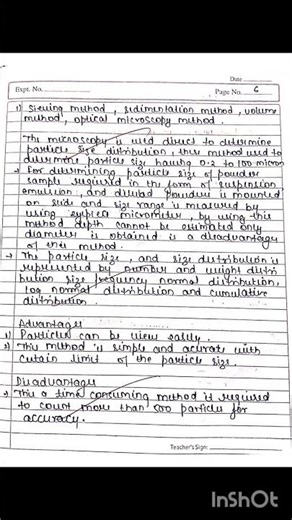 Date
Expt. No.
Page No. 6
1) Sieving method, sedimentation method, volume
method, optical microscopy method.
The microscopy is used direct to determine
particle size distribution, this method used to
determine particle size having 0.2 to 100 micron
→ For determining particle size of powder
sample required in the form of suspension
emulsion, and diluted powder is mounted
on slide and size range is measured by
using eyepiece micrometer, by using this
method depth cannot be estimated only
diameter is obtained is a disadvantages
of this method.
→ The particle size, and size distribution is
represented by number and weight distri
bution size frequency normal distribution,
log normal distribution and cumulative
distribution.
Advantages
1) Particles can be view safely.
2) This method is simple and accurate with
certain limit of the particle size.
Disadvantages
→ This a time consuming method is required
to count more than 500 particles for
accuracy.
Teacher's Sign:
InShOt